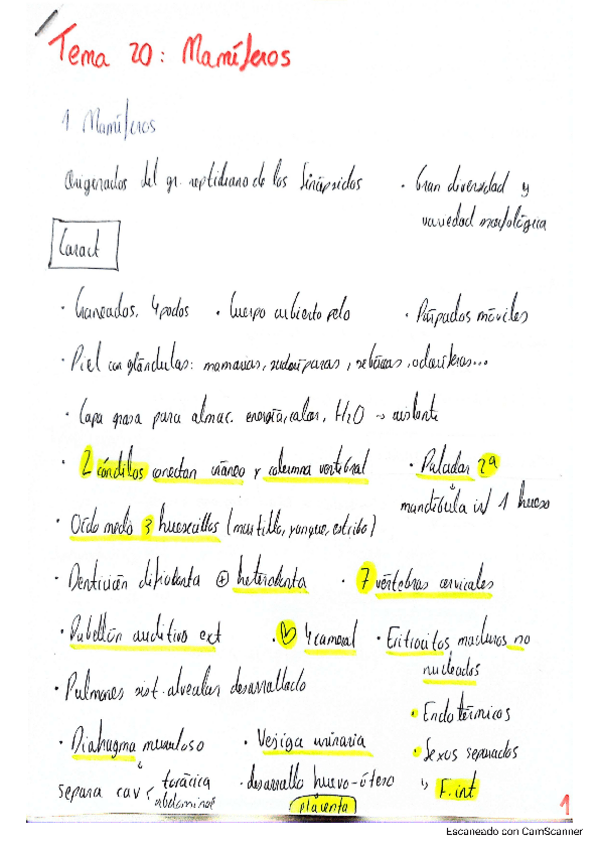 Tema 20: Mamíferos
1 Mamíferos
Originados del gr. reptiliano de los Sinápsidos · Gran diversidad y
variedad morfológica
Caract
· Craneados, 4podos · Cuerpo cubierto pelo · Párpados móviles
· Piel con glándulas: mamarias, sudoríparas, sebáceas, odoríferas...
· Capa grasa para almac. energía, calor, H2O → aislante
· 2 cóndilos conectan cráneo y columna vertebral · Paladar 2ª
mandíbula 1 hueso
· Oído medio 3 huesecillos (martillo, yunque, estribo)
· Dentición difiodonta ⊕ heterodonta · 7 vértebras cervicales
· Pabellón auditivo ext · 4 cameral · Eritrocitos maduros no
nucleados
· Pulmones sist. alveolar desarrollado
· Endotérmicos
· Diafragma musculoso · Vejiga urinaria · Sexos separados
separa cav < torácica · desarrollo huevo-útero ↳ F. int
abdominal placenta
1
Escaneado con CamScanner